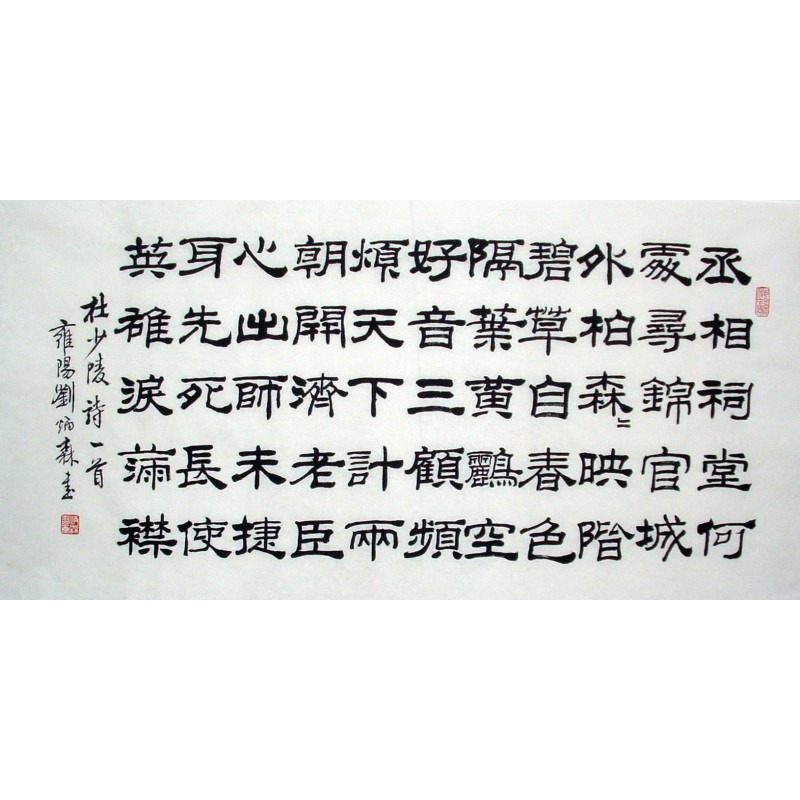 丞相祠堂何
處尋錦官城
外柏森々映階
碧草自春色
隔葉黃鸝空
好音三顧頻
煩天下計兩
朝開濟老臣
心出師未捷
身先死長使
英雄淚滿襟
杜少陵詩一首
雍陽劉炳森書